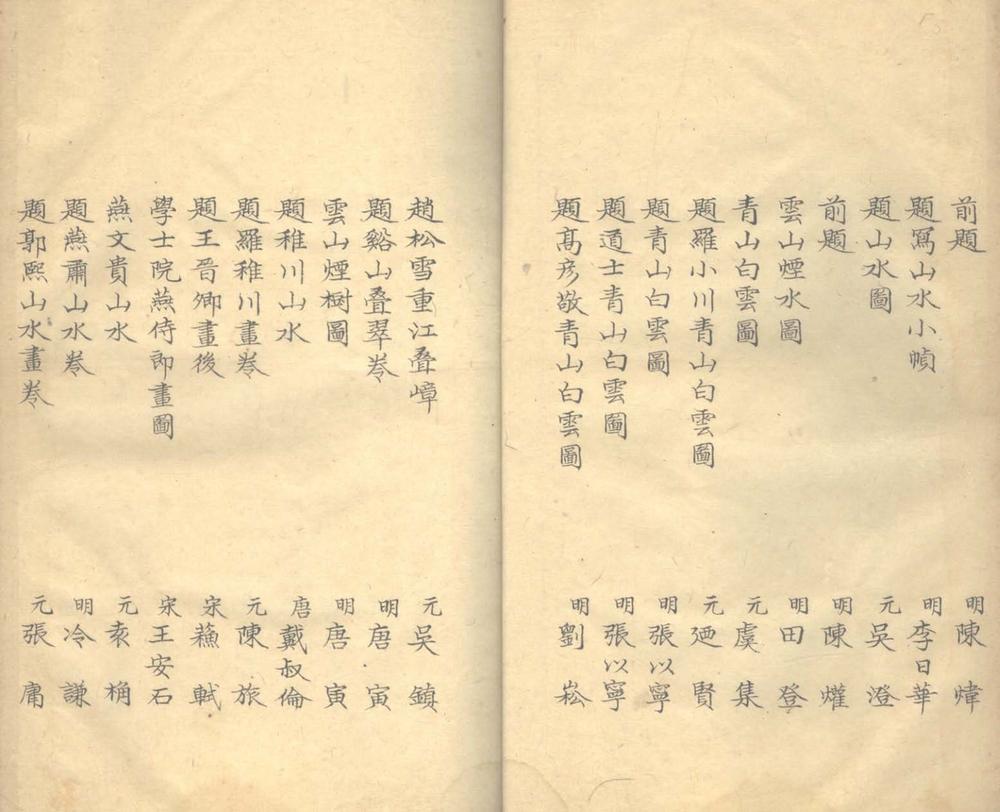 前題 明 陳煒
題寫山水小幀 明 李日華
題山水圖 元 吳澄
前題 明 陳燿
雲山煙水圖 明 田登
青山白雲圖 元 虞集
題羅小川青山白雲圖 元 廼賢
題青山白雲圖 明 張以寧
題道士青山白雲圖 明 張以寧
題高彥敬青山白雲圖 明 劉崧
趙松雪重江疊嶂 元 吳鎮
題谿山疊翠卷 明 唐寅
雲山煙樹圖 明 唐寅
題稚川山水 唐 戴叔倫
題羅稚川畫卷 元 陳旅
題王晉卿畫後 宋 蘇軾
學士院燕侍郎畫圖 宋 王安石
燕文貴山水 元 袁桷
題燕肅山水卷 明 冷謙
題郭熙山水畫卷 元 張庸